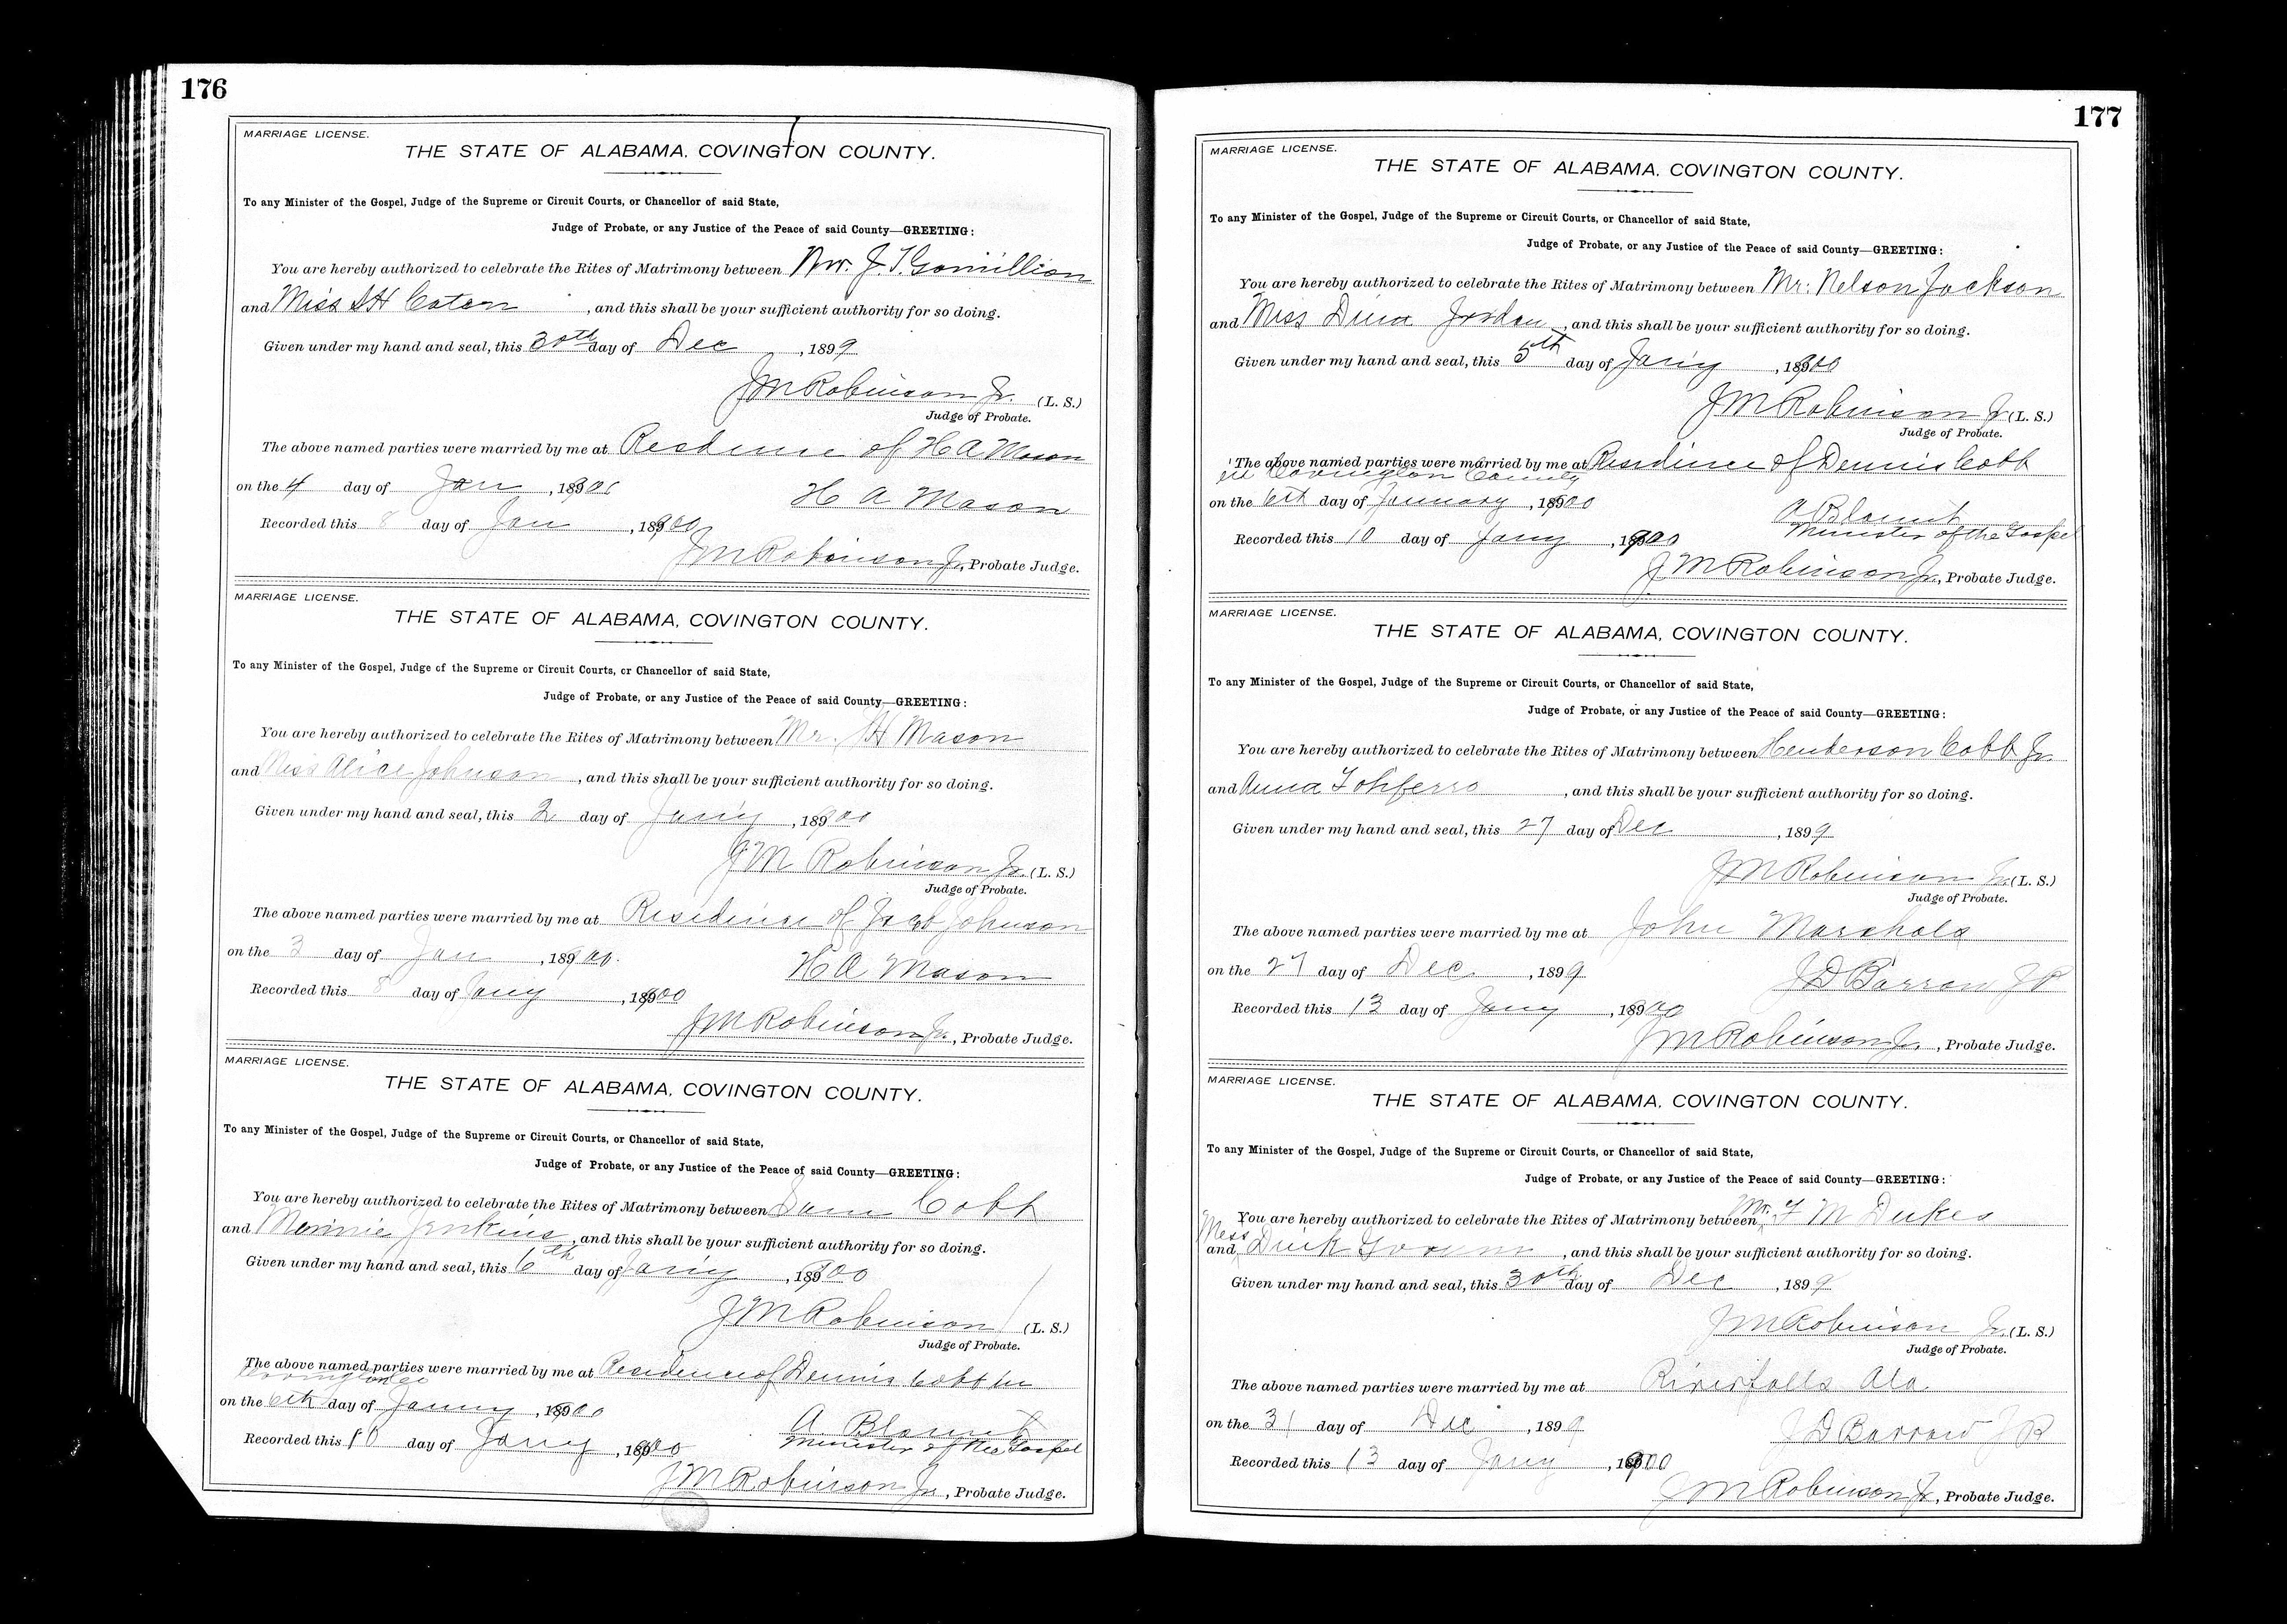 176
MARRIAGE LICENSE.
THE STATE OF ALABAMA, COVINGTON COUNTY.
To any Minister of the Gospel, Judge of the Supreme or Circuit Courts, or Chancellor of said State,
Judge of Probate, or any Justice of the Peace of said County—GREETING:
You are hereby authorized to celebrate the Rites of Matrimony between Mr. J. T. Gomillion
and Miss H Caton, and this shall be your sufficient authority for so doing.
Given under my hand and seal, this 30th day of Dec, 1899
JM Robinson Jr. (L. S.)
Judge of Probate.
The above named parties were married by me at Residence of H A Mason
on the 4 day of Jan, 1900
H A Mason
Recorded this 8 day of Jan, 1900
JM Robinson Jr., Probate Judge.
MARRIAGE LICENSE.
THE STATE OF ALABAMA, COVINGTON COUNTY.
To any Minister of the Gospel, Judge of the Supreme or Circuit Courts, or Chancellor of said State,
Judge of Probate, or any Justice of the Peace of said County—GREETING:
You are hereby authorized to celebrate the Rites of Matrimony between Mr. H Mason
and Miss Alice Johnson, and this shall be your sufficient authority for so doing.
Given under my hand and seal, this 2 day of Jany, 1900
JM Robinson Jr. (L. S.)
Judge of Probate.
The above named parties were married by me at Residence of Jacob Johnson
on the 3 day of Jan, 1900.
H A Mason
Recorded this 8 day of Jany, 1900
JM Robinson Jr., Probate Judge.
MARRIAGE LICENSE.
THE STATE OF ALABAMA, COVINGTON COUNTY.
To any Minister of the Gospel, Judge of the Supreme or Circuit Courts, or Chancellor of said State,
Judge of Probate, or any Justice of the Peace of said County—GREETING:
You are hereby authorized to celebrate the Rites of Matrimony between Sam Cobb
and Minnie Jenkins, and this shall be your sufficient authority for so doing.
Given under my hand and seal, this 6th day of Jany, 1900
JM Robinson (L. S.)
Judge of Probate.
The above named parties were married by me at Residence of Dennis Cobb in
Covington Co
on the 6th day of Janny, 1900
A. Blount
Minister of the Gospel
Recorded this 10 day of Jany, 1900
JM Robinson Jr., Probate Judge.
177
MARRIAGE LICENSE.
THE STATE OF ALABAMA, COVINGTON COUNTY.
To any Minister of the Gospel, Judge of the Supreme or Circuit Courts, or Chancellor of said State,
Judge of Probate, or any Justice of the Peace of said County—GREETING:
You are hereby authorized to celebrate the Rites of Matrimony between Mr. Nelson Jackson
and Miss Dina Jordan, and this shall be your sufficient authority for so doing.
Given under my hand and seal, this 5th day of Jany, 1900
JM Robinson Jr (L. S.)
Judge of Probate.
The above named parties were married by me at Residence of Dennis Cobb
in Covington County
on the 6th day of January, 1900
A Blount
Minister of the Gospel
Recorded this 10 day of Jany, 1900
J M Robinson Jr., Probate Judge.
MARRIAGE LICENSE.
THE STATE OF ALABAMA, COVINGTON COUNTY.
To any Minister of the Gospel, Judge of the Supreme or Circuit Courts, or Chancellor of said State,
Judge of Probate, or any Justice of the Peace of said County—GREETING:
You are hereby authorized to celebrate the Rites of Matrimony between Henderson Cobb Jr.
and Anna Toliferro, and this shall be your sufficient authority for so doing.
Given under my hand and seal, this 27 day of Dec, 1899
JM Robinson Jr. (L. S.)
Judge of Probate.
The above named parties were married by me at John Marshals
on the 27 day of Dec, 1899
J D Barrow JP
Recorded this 13 day of Jany, 1900
JM Robinson Jr., Probate Judge.
MARRIAGE LICENSE.
THE STATE OF ALABAMA, COVINGTON COUNTY.
To any Minister of the Gospel, Judge of the Supreme or Circuit Courts, or Chancellor of said State,
Judge of Probate, or any Justice of the Peace of said County—GREETING:
You are hereby authorized to celebrate the Rites of Matrimony between Mr. M Dukes
and Miss, and this shall be your sufficient authority for so doing.
Given under my hand and seal, this 30th day of Dec, 1899
JM Robinson Jr. (L. S.)
Judge of Probate.
The above named parties were married by me at Riverfalls Ala.
on the 31 day of Dec, 1899
J D Barrow JP
Recorded this 13 day of Jany, 1900
JM Robinson Jr., Probate Judge.